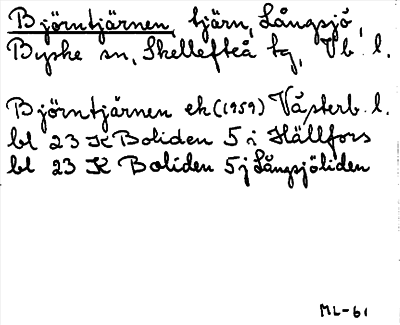 Björntjärnen, tjärn, Långsjö,
Byske sn, Skellefteå tg, Vb. l.
Björntjärnen ek (1959) Västerb. l.
bl 23 K Boliden 5 i Hällfors
bl 23 K Boliden 5 j Långsjöliden
ML-61